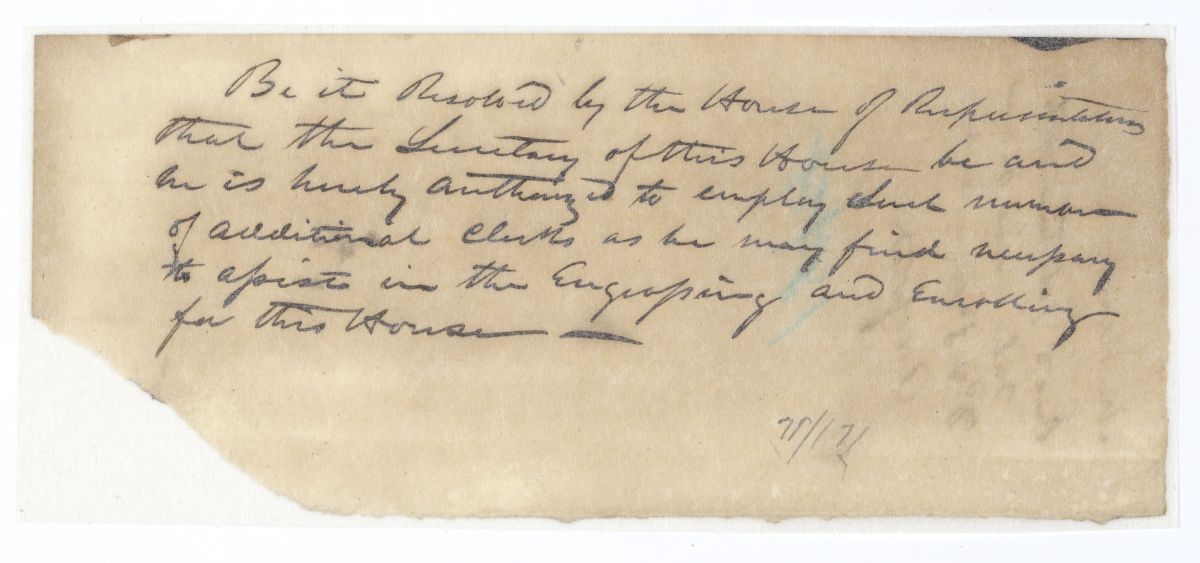 Be it Resolved by the House of Representatives
that the Secretary of this House be and
he is hereby authorized to employ Such number
of additional Clerks as he may find necessary
to assist in the Engrossing and Enrolling
for this House —